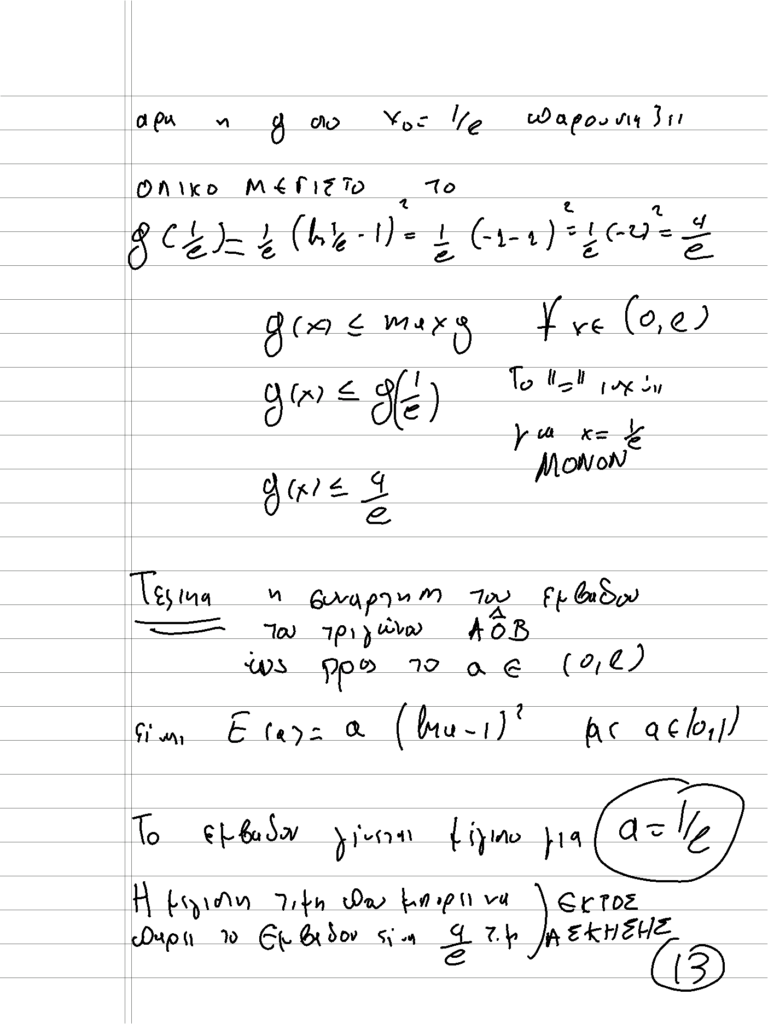 αρα η g στο x₀ = 1/e παρουσιάζει
ΟΛΙΚΟ ΜΕΓΙΣΤΟ το
g(1/e) = 1/e (ln 1/e - 1)² = 1/e (-1-1)² = 1/e (-2)² = 4/e
g(x) ≤ max g ∀ x ∈ (0, e)
g(x) ≤ g(1/e) Το "=" ισχύει
για x = 1/e
ΜΟΝΟΝ
g(x) ≤ 4/e
Τελικα η συναρτηση του εμβαδου
του τριγώνου AÔB
ως προς το a ∈ (0, e)
ειναι E(a) = a (ln a - 1)² με a ∈ (0,1)
Το εμβαδον γίνεται μέγιστο για a = 1/e
Η μεγιστη τιμη που μπορει να ) ΕΚΤΟΣ
παρει το Εμβαδον ειναι 4/e τ.μ ) ΑΣΚΗΣΗΣ
13